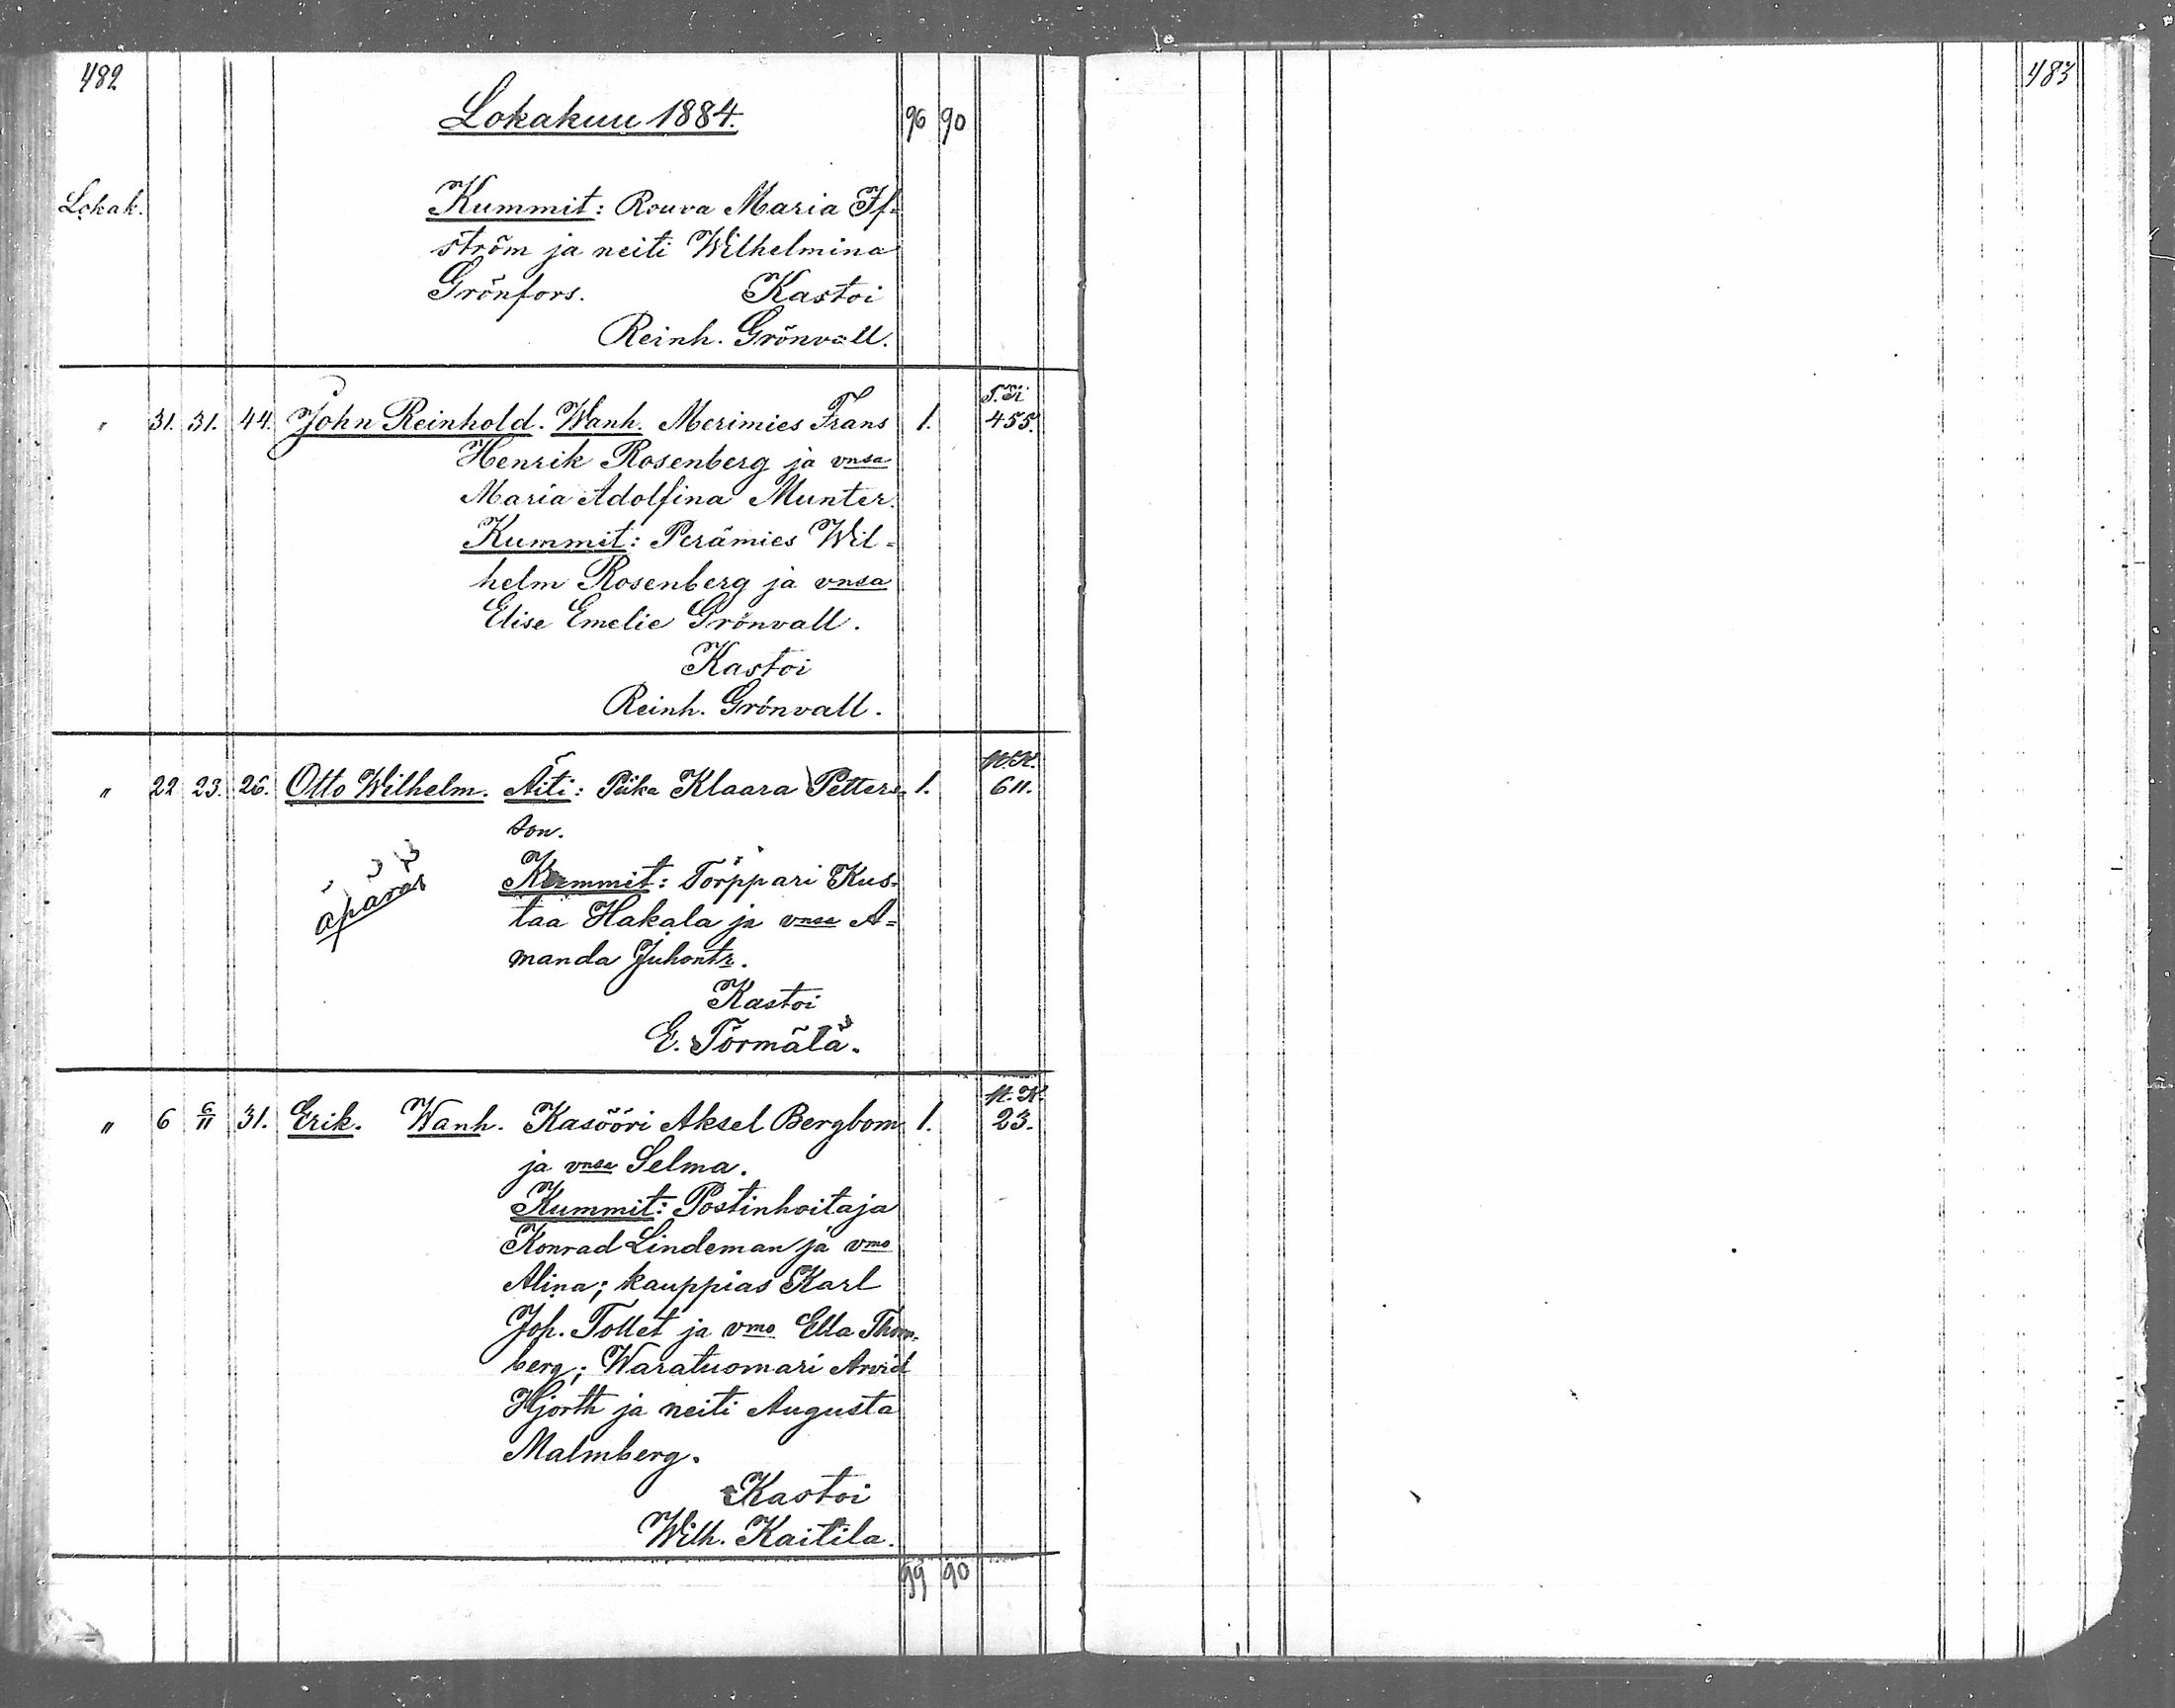 482
483
Lokakuu 1884.
96 90
Lokak. Kummit: Rouva Maria
ström ja neiti Wilhelmina
Grönfors. Kastoi
Reinh. Grönvall.
" 31. 31. 44. John Reinhold. Wanh. Merimies Frans 1. 455.
Henrik Rosenberg ja vnsa
Maria Adolfina Munter.
Kummit: Perämies Wil-
helm Rosenberg ja vnsa
Elise Emelie Grönvall.
Kastoi
Reinh. Grönvall.
M.K.
" 22 23. 26. Otto Wilhelm. Äiti: Piika Klaara Petters- 1. 611.
son.
äpärä
Kummit: Torppari Kus-
taa Hakala ja vnsa A=
manda Juhontr.
Kastoi
E. Törmälä.
M.K.
" 6 6/11 31. Erik. Wanh. Kasööri Aksel Bergbom 1. 23.
ja vnsa Selma.
Kummit: Postinhoitaja
Konrad Lindeman ja vmo
Alina; kauppias Karl
Joh. Tollet ja vmo Ella Thom-
berg; Waratuomari Arvid
Hjorth ja neiti Augusta
Malmberg.
Kastoi
Wilh. Kaitila.
99 90